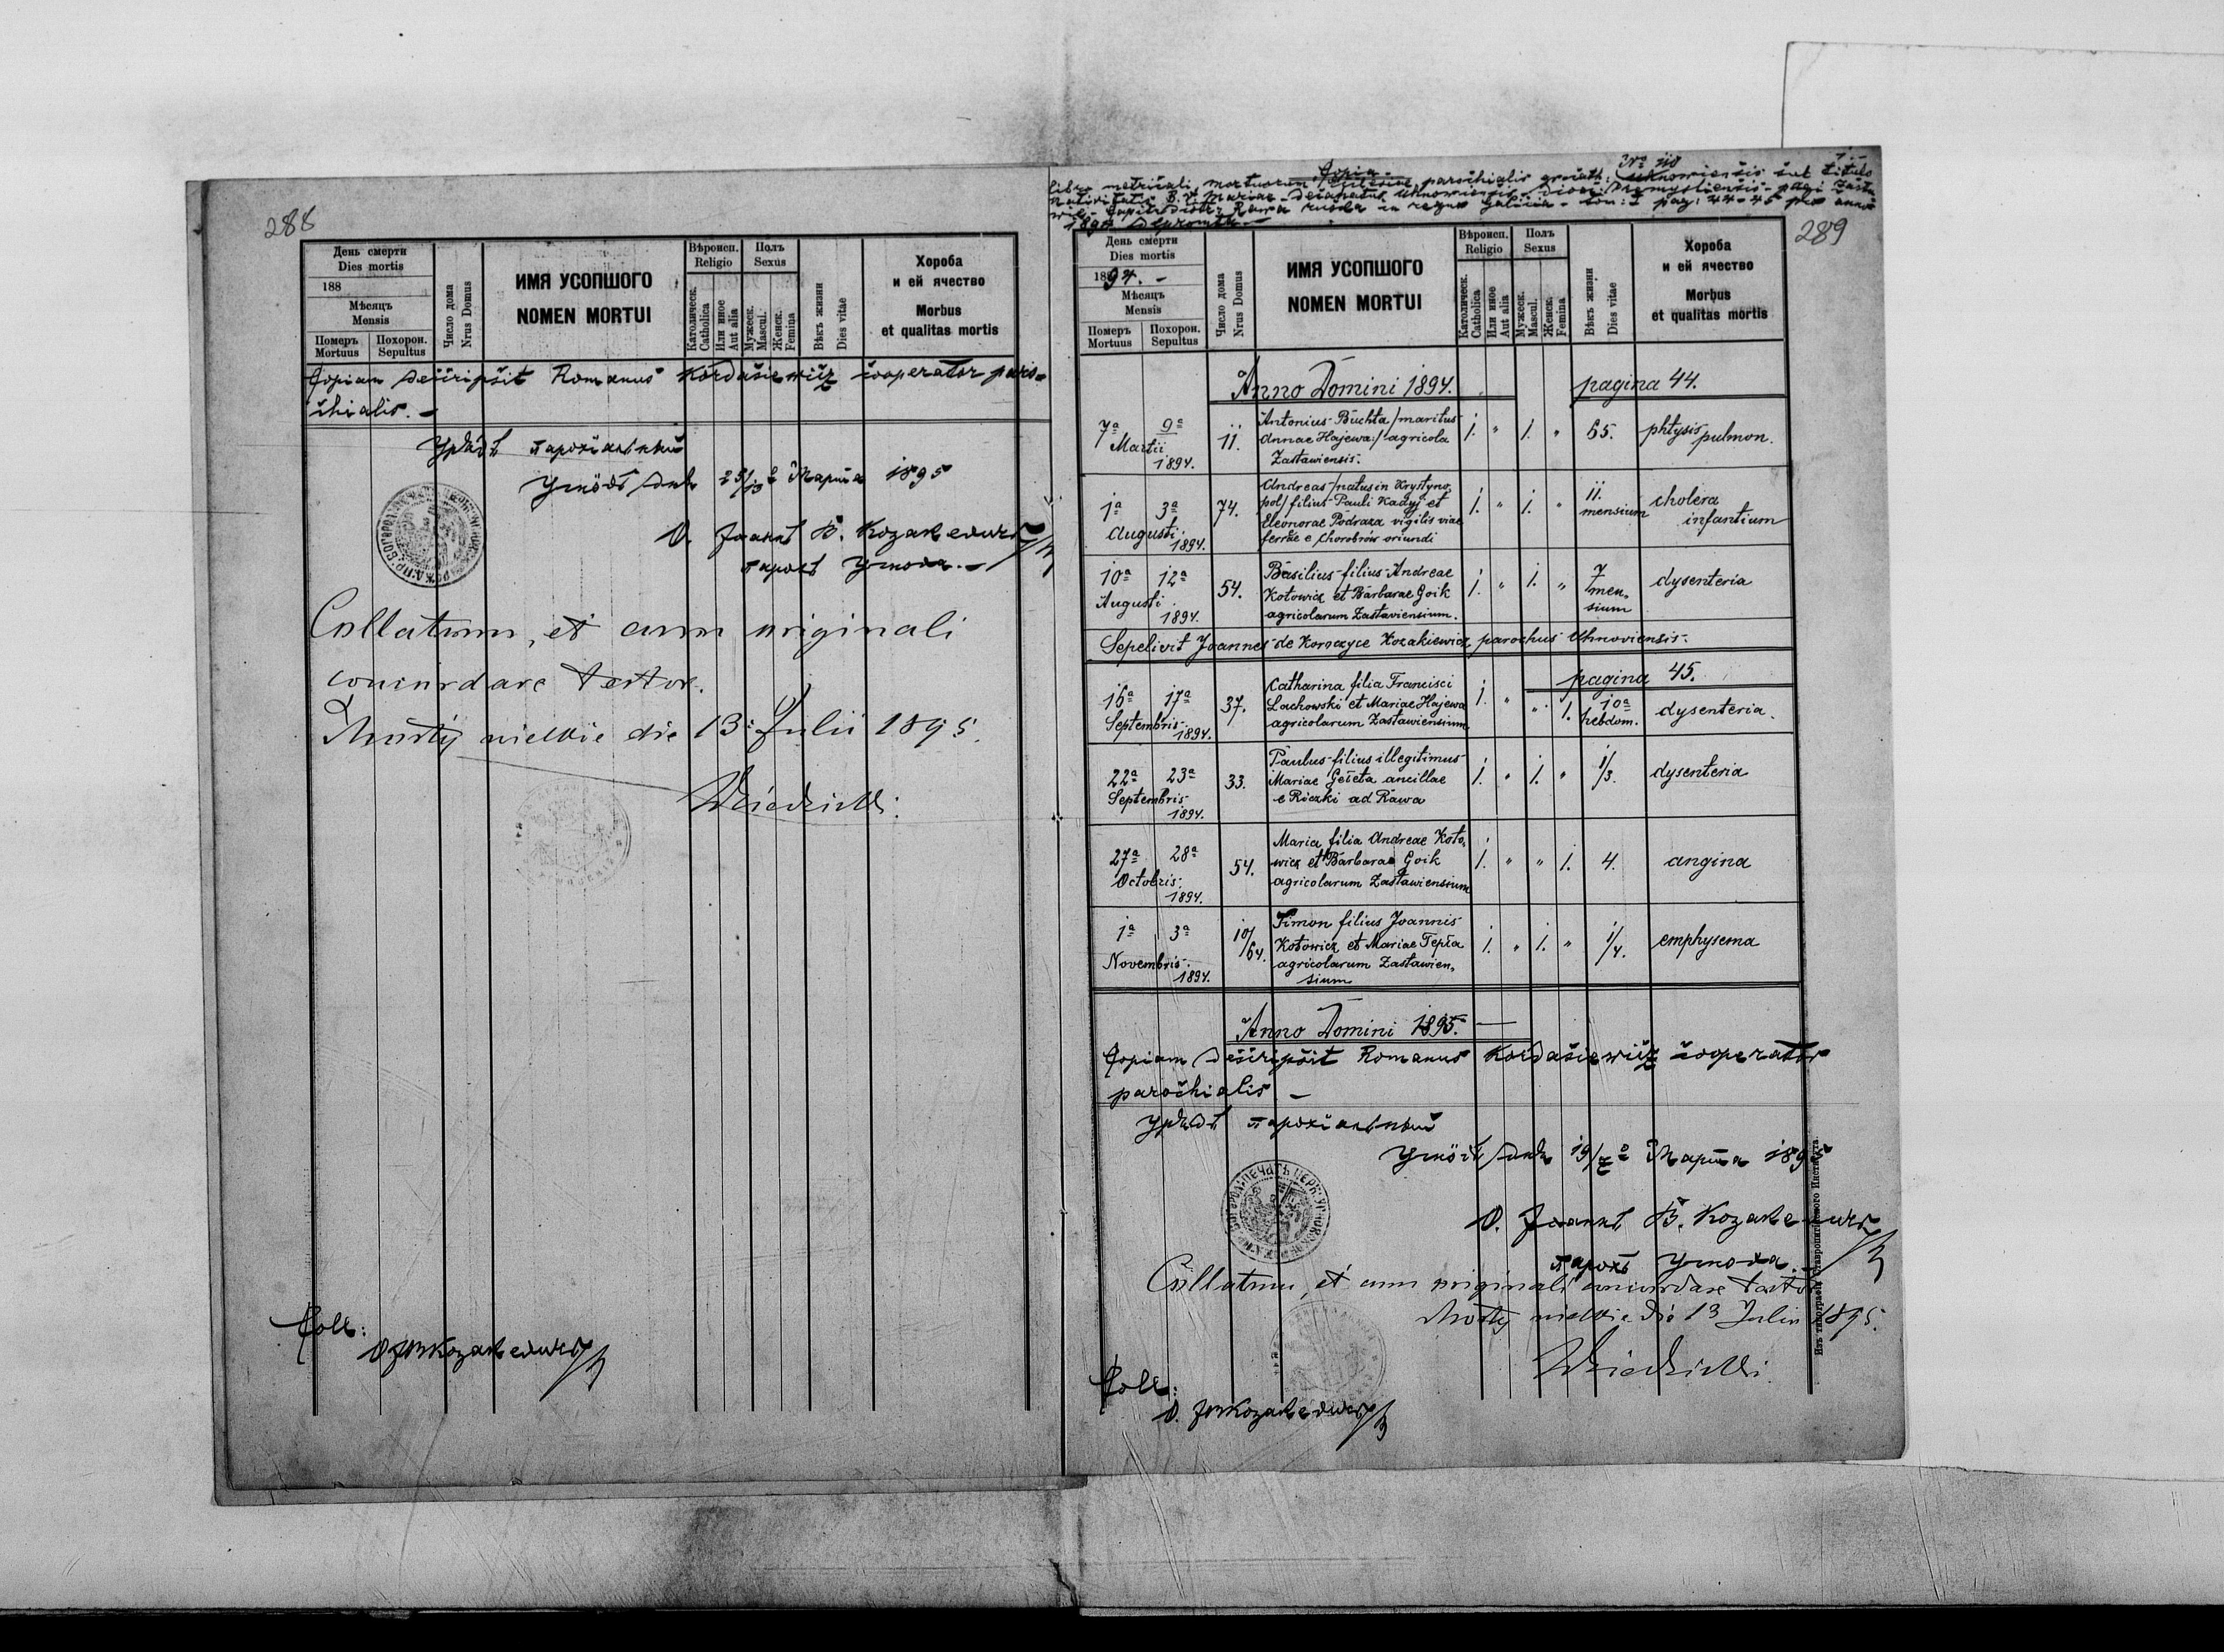 288
День смерти
Dies mortis
188
Мѣсяцъ
Mensis
Померъ
Mortuus
Похорон.
Sepultus
Число дома
Nrus Domus
ИМЯ УСОПШОГО
NOMEN MORTUI
Вѣроисп.
Religio
Католическ.
Catholica
Или иное
Aut alia
Полъ
Sexus
Мужеск.
Mascul.
Женск.
Femina
Вѣкъ жизни
Dies vitae
Хороба
и ей ячество
Morbus
et qualitas mortis
Copiam descripsit Romanus Kordasiewicz cooperator paro-
chialis. -
Урядъ парохіяльный
Угнôвъ дня 25/13 Марта 1895
О. Іоаннъ В. Козакевичъ
парохъ Угнова. -
Collatum, et cum originali
concordare testor.
Mosty wielkie die 13 Julii 1895.
Coll:
289
Copia
Nro 110
libro metricali mortuorum Ecclesiae parochialis gr. cath: Uhnoviensis sub titulo
Nativitatis B. V. Mariae - Decanatus Uhnoviensis - Dioec: Premysliensis - pagi Zasta
wie - Capit. Distr: Rawa ruska in regno Galicia - tom: I pag: 44-45 pro anno
1894 deprompta. -
День смерти
Dies mortis
1894. -
Мѣсяцъ
Mensis
Померъ
Mortuus
Похорон.
Sepultus
Число дома
Nrus Domus
ИМЯ УСОПШОГО
NOMEN MORTUI
Вѣроисп.
Religio
Католическ.
Catholica
Или иное
Aut alia
Полъ
Sexus
Мужеск.
Mascul.
Женск.
Femina
Вѣкъ жизни
Dies vitae
Хороба
и ей ячество
Morbus
et qualitas mortis
Anno Domini 1894. pagina 44.
7a 9a Martii 1894. 11. Antonius Buchta /maritus 1. " 1. " 65. phtysis pulmon.
Annae Hajewa:/ agricola
Zastawiensis.
1a 3a Augusti 1894. 74. Andreas /natus in Krystyno- 1. " 1. " 11. mensium cholera infantium
pol/ filius Pauli Kadyj et
Eleonorae Podraza vigilis viae
ferrae e Chorobrów oriundi
10a 12a Augusti 1894. 54. Basilius filius Andreae 1. " 1. " 7 men- sium dysenteria
Kotowicz et Barbarae Goik
agricolarum Zastaviensium.
Sepelivit Joannes de Koroczyce Kozakiewicz parochus Uhnoviensis.
pagina 45.
16a 17a Septembris 1894. 37. Catharina filia Francisci 1. " " 1. 10a hebdom. dysenteria.
Lachowski et Mariae Hajewa
agricolarum Zastawiensium
22a 23a Septembris 1894. 33. Paulus filius illegitimus 1. " 1. " 1/3. dysenteria
Mariae Geteta ancillae
e Riczki ad Rawa
27a 28a Octobris 1894. 54. Maria filia Andreae Koto- 1. " " 1. 4. angina
wicz et Barbarae Goik
agricolarum Zastawiensium
1a 3a Novembris 1894. 10/64. Simon filius Joannis 1. " 1. " 1/4. emphysema
Kotowicz et Mariae Tepła
agricolarum Zastawien-
sium
Anno Domini 1895. —
Copiam descripsit Romanus Kordasiewicz cooperator
parochialis -
Урядъ парохіяльный
Угнôвъ дня 19/7 Марта 1895
О. Іоаннъ В. Козакевичъ
парохъ Угнова. -
Collatum, et cum originali concordare testor
Mosty wielkie die 13 Julii 1895.
Coll:
Изъ типографіи Ставропигійского Института.